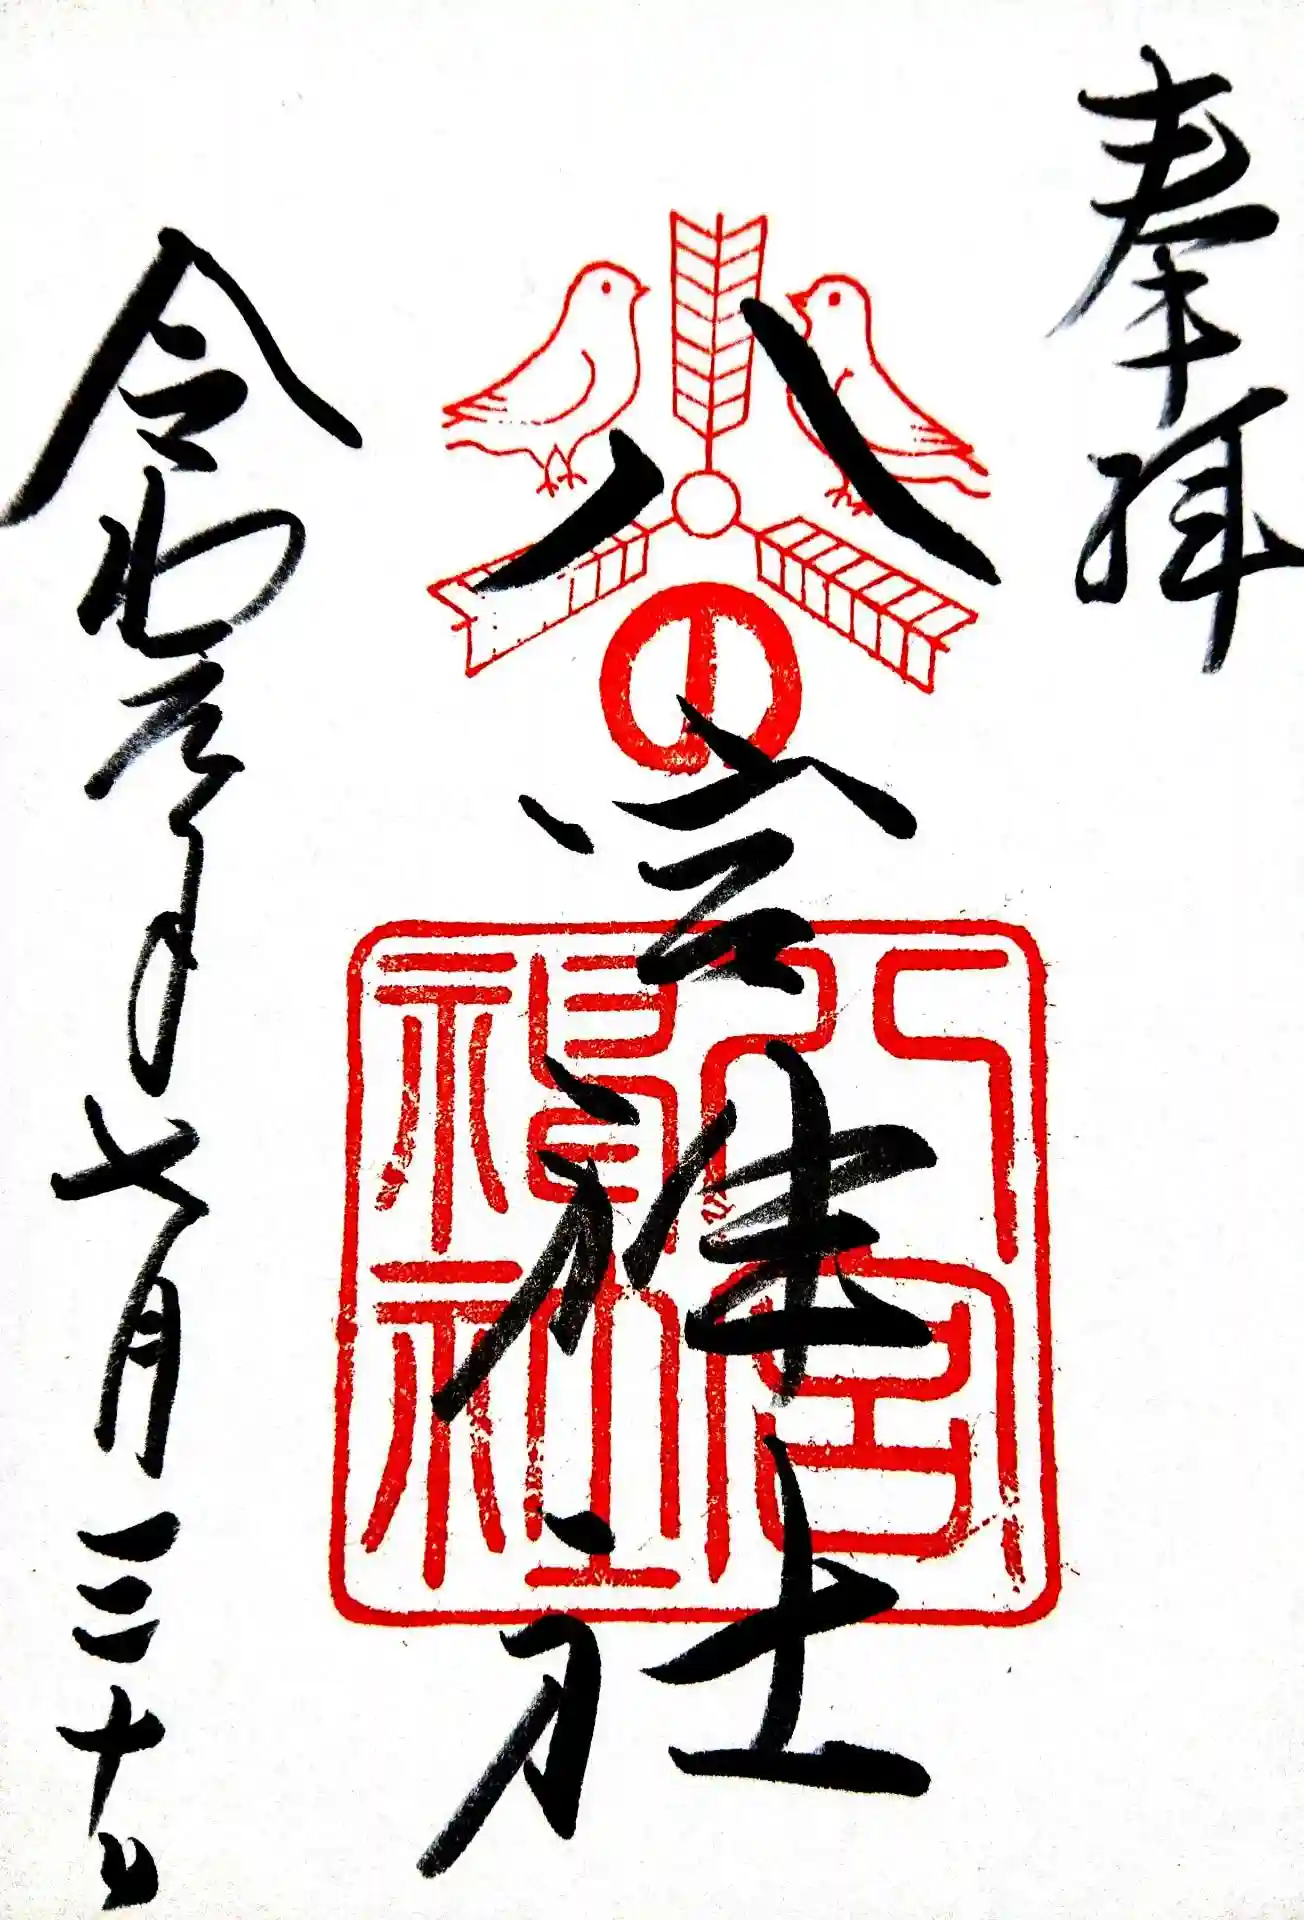 奉拝
八宮神社
の
八宮神社
令和元年七月三十日